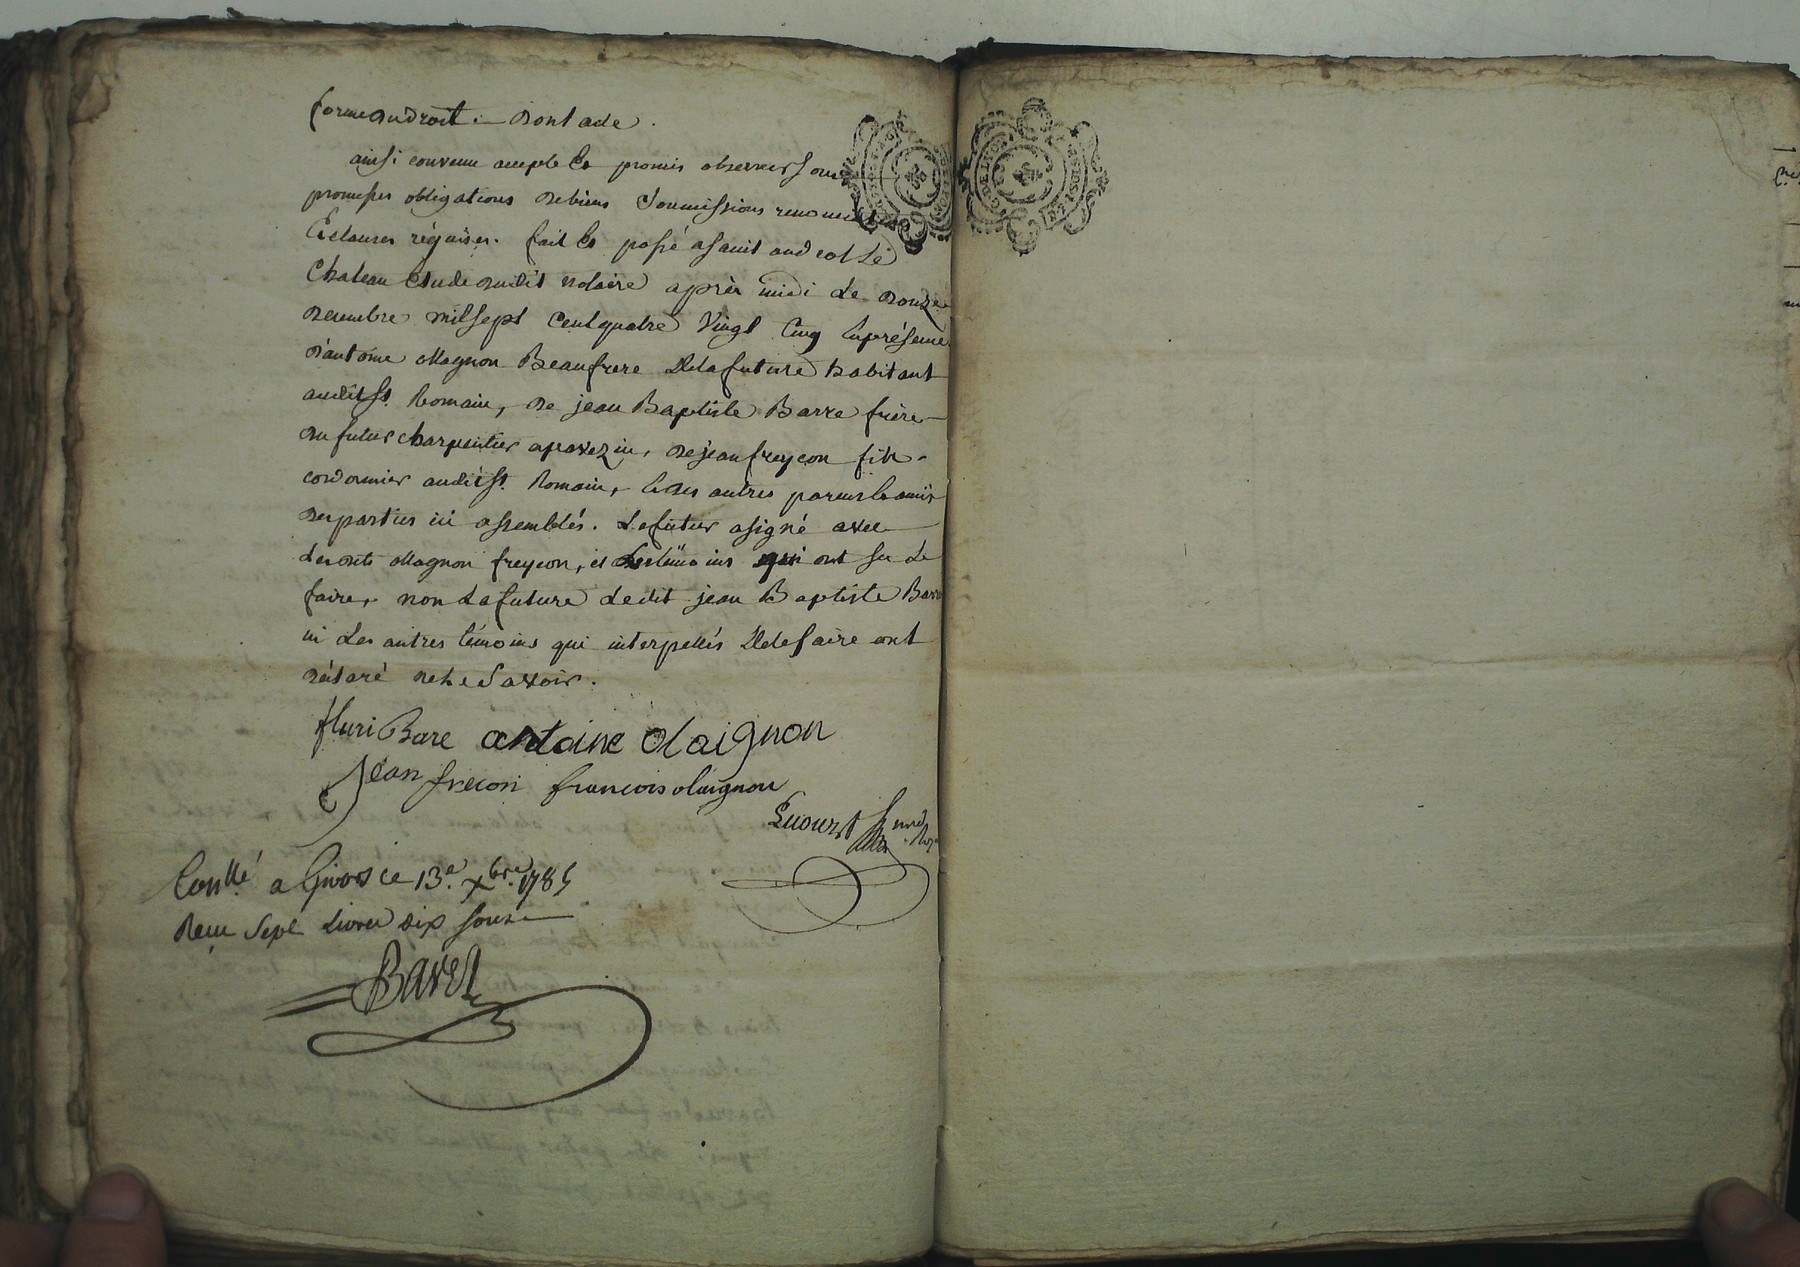 forme du droit. Dont acte.
ainsi convenu accepté et promis observer sous
promesses obligations de biens soumissions renonciations
et clauses requises. fait et passé a saint andeol le
Chateau étude dudit notaire après midi le douze
decembre mil sept cent quatre vingt cinq en présence
d'antoine Magnon Beaufrere de la future habitant
audit st. Romain, de jean Baptiste Barre frère
du futur charpentier a pavezin, de jean freycon fils
cordonnier audit st. Romain, et des autres parens et amis
des parties ici assemblés. Le futur a signé avec
lesdits Magnon freycon, et des témoins qui ont su le
faire, non la future ledit jean Baptiste Barre
ni les autres témoins qui interpellés de le faire ont
déclaré ne le savoir.
fluri Bare antoine Maignon
Jean frecon francois Maignon
Conllé a Givors ce 13e. Xbre. 1785
Reçu Sept livres dix sous
Bavet
DE LYON